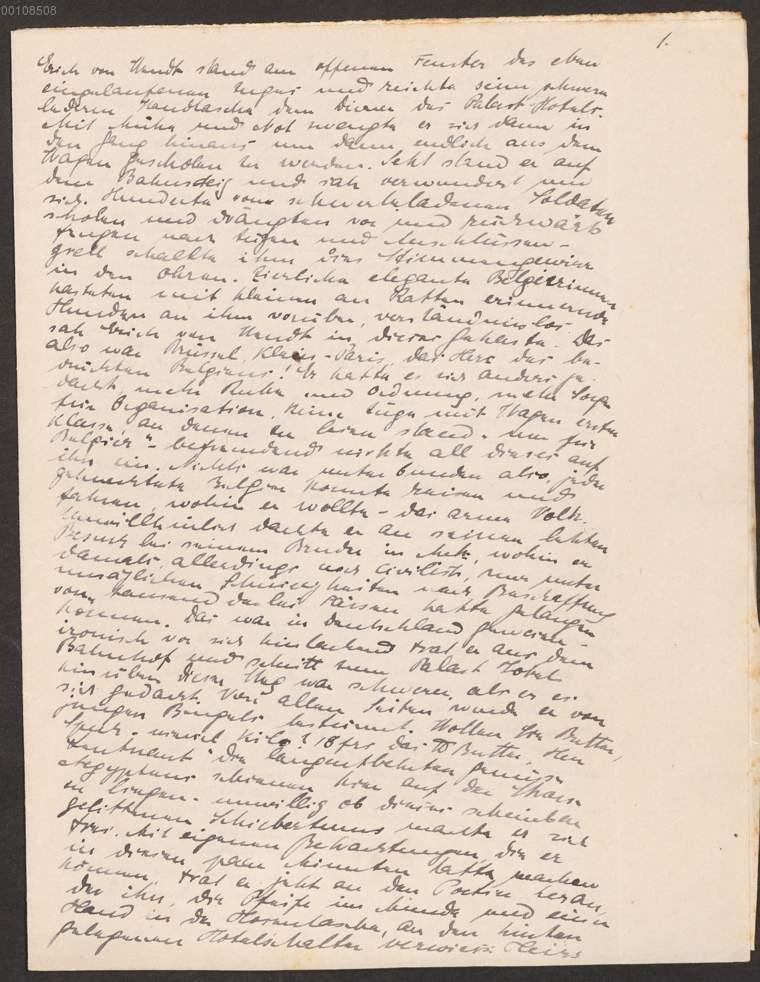 00108508
1.
Erich von Wendt stand am offenen Fenster des eben
eingelaufenen Zuges und reichte seine schwere
lederne Handtasche dem Diener des Palast Hotels.
Mit Mühe und Not zwengte er sich dann in
den Gang hinaus um dann endlich aus dem
Wagen geschoben zu werden. Jetzt stand er auf
dem Bahnsteig und sah verwundert um
sich. Hunderte von schwerbeladenen Soldaten
schoben und drängten vor und rückwärts
fragen nach Zügen und Anschlüssen –
grell schallte ihm das Stimmengewirr
in den Ohren. Zierliche elegante Belgierinnen
hasteten mit kleinen an Ratten erinnernde
Hunden an ihm vorüber, verständnislos
sah Erich von Wendt in dieses Gehaste. Das
also war Brüssel, Klein-Paris, das Herz des be-
drückten Belgiens! Er hatte es sich anders ge-
dacht, mehr Ruhe und Ordnung, mehr Sorge
für Organisation, keine Züge mit Wagen erster
Klasse, an denen zu lesen stand „Nur für
Belgier“ – befremdend wirkte all dieses auf
ihn ein. Nichts war unterbunden also, jeder
Belgier konnte reisen und
fahren, wohin er wollte – das arme Volk.
Unwillkürlich dachte er an seinen letzten
Besuch bei seinem Bruder in Metz, wohin er
damals, allerdings noch Civilist, nur unter
unsäglichen Schwierigkeiten nach Beschaffung
von tausend derlei Pässen hatte gelangen
können. Das war in Deutschland gewesen –
ironisch vor sich hinlachend trat er aus dem
Bahnhof und schritt zum Palast Hotel
hinüber. Dieser Weg war schwerer, als er es
sich gedacht. Von allen Seiten wurde er von
jungen Bengels bestürmt. Wollen Sie Butter,
Speck, wieviel Kilo? 18 frs das ℔ Butter, Herr
Leutnant“ die langentbehrten Genüsse
Aegyptens schienen hier auf der Strasse
zu liegen – unwillig ob dieses scheinbar
gelittenen Schiebertums machte er sich
frei. Mit eigenen Betrachtungen, die er
in diesen paar Minuten hatte machen
können, trat er jetzt an den Portier heran,
der ihn, die Pfeife im Munde und eine
Hand in der Hosentasche, an den hinten
gelegenen Hotelschalter verwies.